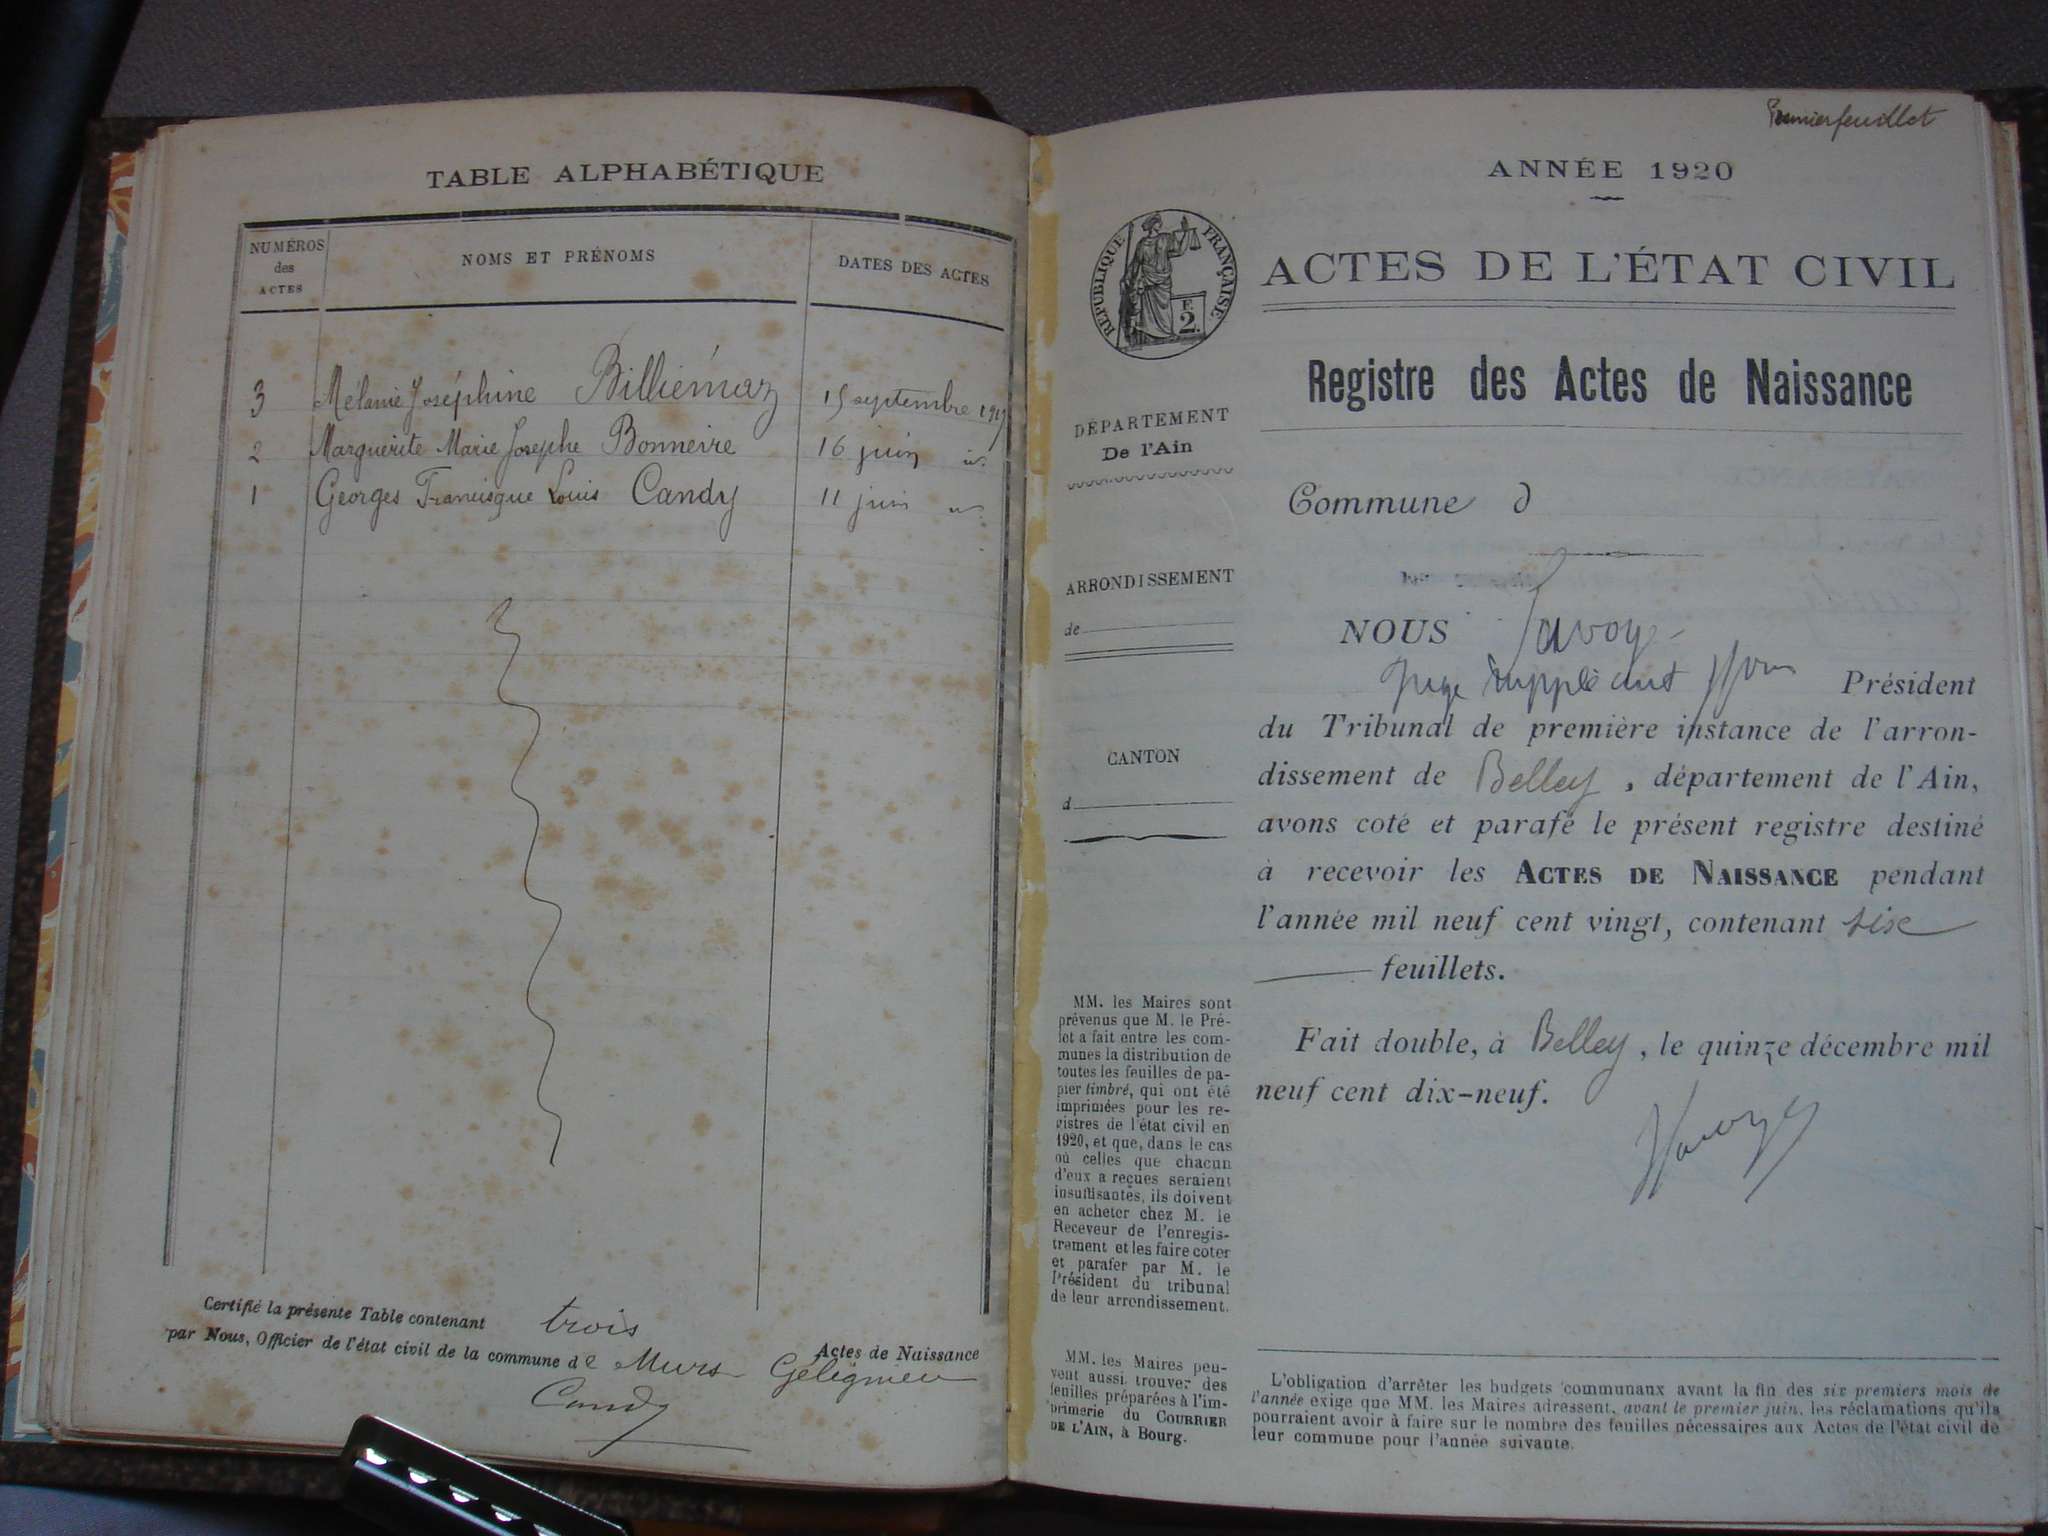 TABLE ALPHABÉTIQUE
NUMÉROS
des
ACTES
NOMS ET PRÉNOMS
DATES DES ACTES
3 Mélanie Joséphine Billiémaz 15 septembre
2 Marguerite Marie Josephe Bonneire 16 juin
1 Georges Francisque Louis Candy 11 juin
Certifié la présente Table contenant trois Actes de Naissance
par Nous, Officier de l'état civil de la commune de Murs Gélignieu
Candy
feuillet
ANNÉE 1920
RÉPUBLIQUE FRANÇAISE
F.
2.
ACTES DE L'ÉTAT CIVIL
Registre des Actes de Naissance
DÉPARTEMENT
De l'Ain
Commune d
ARRONDISSEMENT
de
CANTON
d
NOUS Savoye
Juge suppléant Président
du Tribunal de première instance de l'arron-
dissement de Belley, département de l'Ain,
avons coté et parafé le présent registre destiné
à recevoir les ACTES DE NAISSANCE pendant
l'année mil neuf cent vingt, contenant six
feuillets.
Fait double, à Belley, le quinze décembre mil
neuf cent dix-neuf.
MM. les Maires sont
prévenus que M. le Pré-
fet a fait entre les com-
munes la distribution de
toutes les feuilles de pa-
pier timbré, qui ont été
imprimées pour les re-
gistres de l'état civil en
1920, et que, dans le cas
où celles que chacun
d'eux a reçues seraient
insuffisantes, ils doivent
en acheter chez M. le
Receveur de l'enregis-
trement et les faire coter
et parafer par M. le
Président du tribunal
de leur arrondissement.
MM. les Maires peu-
vent aussi trouver des
feuilles préparées à l'im-
primerie du COURRIER
DE L'AIN, à Bourg.
L'obligation d'arrêter les budgets communaux avant la fin des six premiers mois de
l'année exige que MM. les Maires adressent, avant le premier juin, les réclamations qu'ils
pourraient avoir à faire sur le nombre des feuilles nécessaires aux Actes de l'état civil de
leur commune pour l'année suivante.